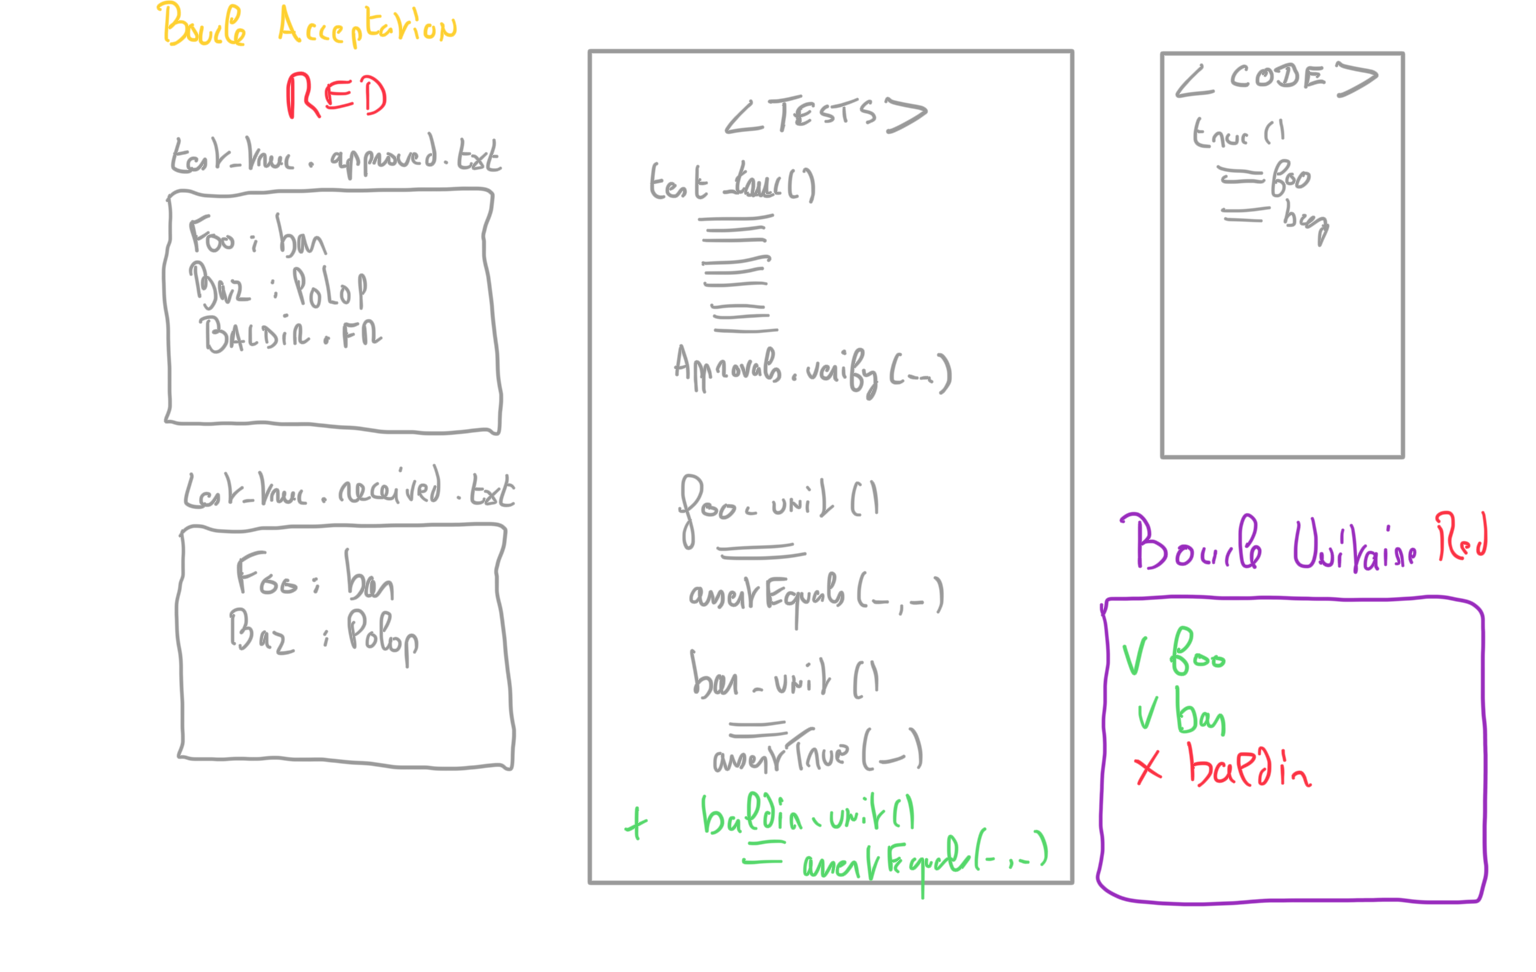 Boucle Acceptation
RED
test_truc.approved.txt
Foo : bar
Baz : Polop
BALDIR.FR
test_truc.received.txt
Foo : bar
Baz : Polop
<TESTS>
test_truc()
Approvals.verify(--)
foo_unit()
assertEquals(-,-)
bar_unit()
assertTrue(-)
+ baldir_unit()
assertEquals(-,-)
<CODE>
truc()
foo
Boucle Unitaire Red
V foo
V bar
X baldir